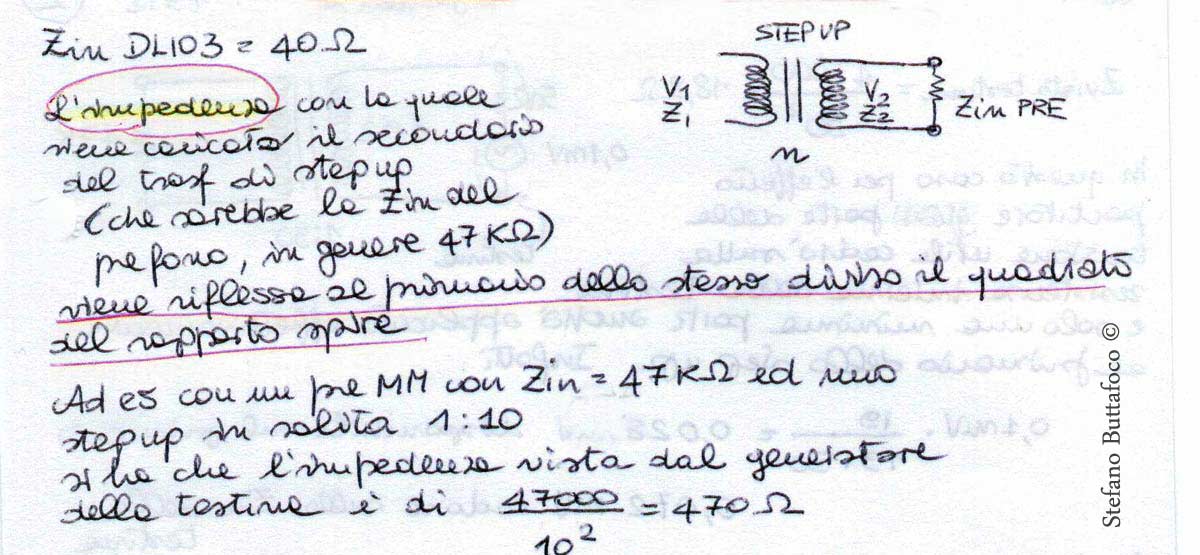 Zin DL103 = 40Ω
L'impedenza con la quale
viene caricato il secondario
del trasf di step up
(che sarebbe la Zin del
prefono, in genere 47KΩ)
viene riflessa al primario dello stesso diviso il quadrato
del rapporto spire
Ad es con un pre MM con Zin = 47KΩ ed uno
step up in salita 1:10
si ha che l'impedenza vista dal generatore
della testina è di 47000/10² = 470Ω
STEP UP
V1
Z1
V2
Z2
Zin PRE
n
Stefano Buttafoco ©